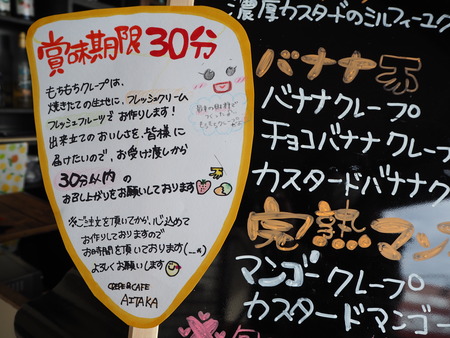 賞味期限30分
もちもちクレープは、
焼きたての生地に、フレッシュクリーム
フレッシュフルーツでお作りします!
出来立てのおいしさを、皆様に
届けたいので、お受け渡しから
30分以内の
お召し上がりをお願いしております
ご注文を頂いてから、心込めて
お作りしておりますので
お時間を頂いております(__*)
よろしくお願いします
CREPE & CAFE
AITAKA
濃厚カスタードのミルフィーユク
バナナ
バナナクレープ
チョコバナナクレープ
カスタードバナナク
完熟マン
マンゴークレープ
カスタードマンゴー